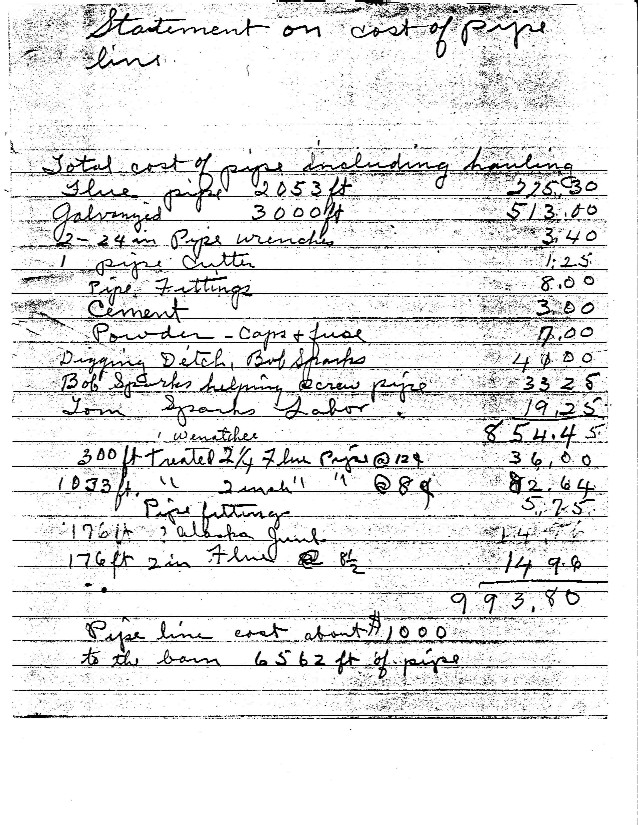 Statement on cost of pipe
line
Total cost of pipe including hauling
Flue pipe 2053 ft 225.30
Galvanized 3000 ft 513.00
2-24 in Pipe wrenches 3.40
1 pipe cutter 1.25
Pipe Fittings 8.00
Cement 3.00
Powder - Caps + fuse 7.00
Digging Detch, Bob Sparks 41.00
Bob Sparks helping screw pipe 33 25
Tom Sparks Labor. 19,25
Wenatchee 854.45
300 ft treated 2 1/4 Flue Pipe @ 12¢ 36,00
1033 ft. " 2 inch " " @ 8¢ 82.64
Pipe fittings 5,75
176 ft Alaska Junk
176 ft 2 in Flue @ 8 1/2 14 98
993.80
Pipe line cost about $1000
to the barn 6562 ft of pipe